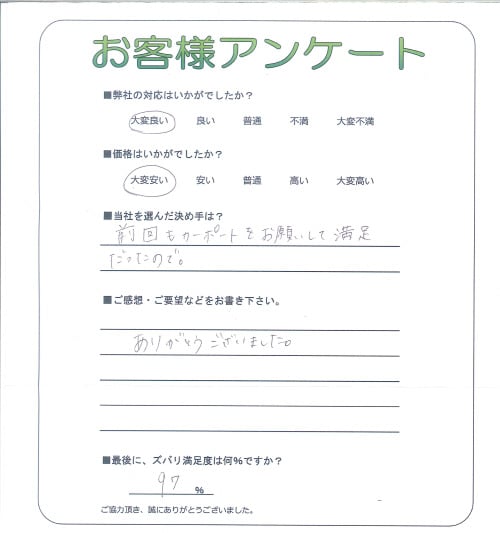 お客様アンケート
■弊社の対応はいかがでしたか？
大変良い 良い 普通 不満 大変不満
■価格はいかがでしたか？
大変安い 安い 普通 高い 大変高い
■当社を選んだ決め手は？
前回もカーポートをお願いして満足
だったので。
■ご感想・ご要望などをお書き下さい。
ありがとうございました。
■最後に、ズバリ満足度は何％ですか？
97 %
ご協力頂き、誠にありがとうございました。